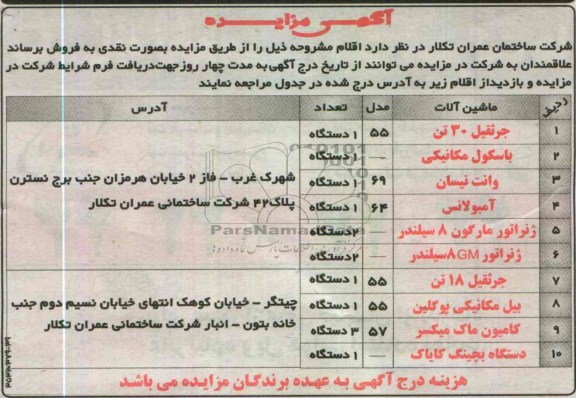 آگهی مزایده
شرکت ساختمان عمران تکلار در نظر دارد اقلام مشروحه ذیل را از طریق مزایده بصورت نقدی به فروش برساند
علاقمندان به شرکت در مزایده می توانند از تاریخ درج آگهی به مدت چهار روز جهت دریافت فرم شرایط شرکت در
مزایده و بازدید از اقلام زیر به آدرس درج شده در جدول مراجعه نمایند
ردیف ماشین آلات مدل تعداد آدرس
۱ جرثقیل ۳۰ تن ۵۵ ۱ دستگاه
۲ باسکول مکانیکی — ۱ دستگاه
۳ وانت نیسان ۶۹ ۱ دستگاه
۴ آمبولانس ۶۴ ۱ دستگاه
۵ ژنراتور مارگون ۸ سیلندر — ۲ دستگاه
۶ ژنراتور GM ۸ سیلندر — ۲ دستگاه
شهرک غرب – فاز ۲ خیابان هرمزان جنب برج نسترن
پلاک ۴۲ شرکت ساختمانی عمران تکلار
۷ جرثقیل ۱۸ تن ۵۵ ۱ دستگاه
۸ بیل مکانیکی پوکلین ۵۵ ۱ دستگاه
۹ کامیون ماک میکسر ۵۷ ۳ دستگاه
۱۰ دستگاه بچینگ کاباک — ۱ دستگاه
چیتگر – خیابان کوهک انتهای خیابان نسیم دوم جنب
خانه بتون – انبار شرکت ساختمانی عمران تکلار
هزینه درج آگهی به عهده برندگان مزایده می باشد
ParsNamaddata